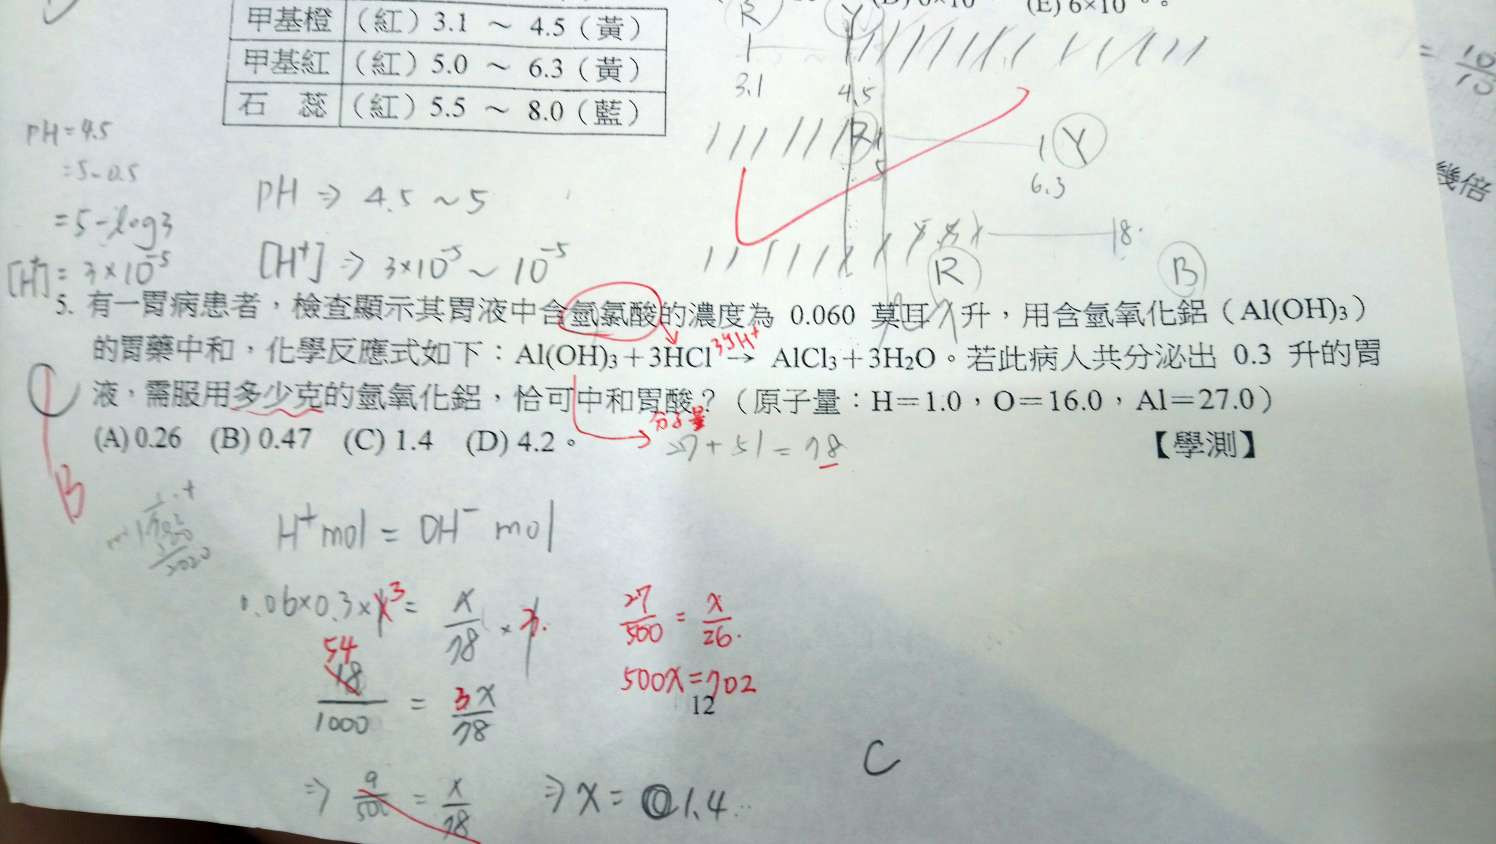 甲基橙 （紅）3.1 ～ 4.5（黃）
甲基紅 （紅）5.0 ～ 6.3（黃）
石 蕊 （紅）5.5 ～ 8.0（藍）
(E) 6×10
R Y
3.1 4.5
R Y
6.3
8.
R B
幾倍
PH=4.5
=5-0.5
=5-log3
[H⁺]= 3×10⁻⁵
PH ⇒ 4.5 ~ 5
[H⁺] ⇒ 3×10⁻⁵ ~ 10⁻⁵
5. 有一胃病患者，檢查顯示其胃液中含氫氯酸的濃度為 0.060 莫耳／升，用含氫氧化鋁（Al(OH)₃）
的胃藥中和，化學反應式如下：Al(OH)₃＋3HCl → AlCl₃＋3H₂O。若此病人共分泌出 0.3 升的胃
液，需服用多少克的氫氧化鋁，恰可中和胃酸？（原子量：H＝1.0，O＝16.0，Al＝27.0）
(A) 0.26 (B) 0.47 (C) 1.4 (D) 4.2。 【學測】
分子量
27+51=78
B
H⁺mol = OH⁻ mol
0.06×0.3× 3 = x/78 ×
54
18/1000 = 3x/78
⇒ 9/500 = x/78 ⇒ x = 1.4
27/500 = x/26.
500x=702
12
C